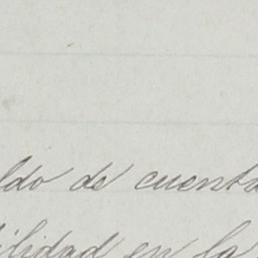 ldo de cuenta
ilidad en la